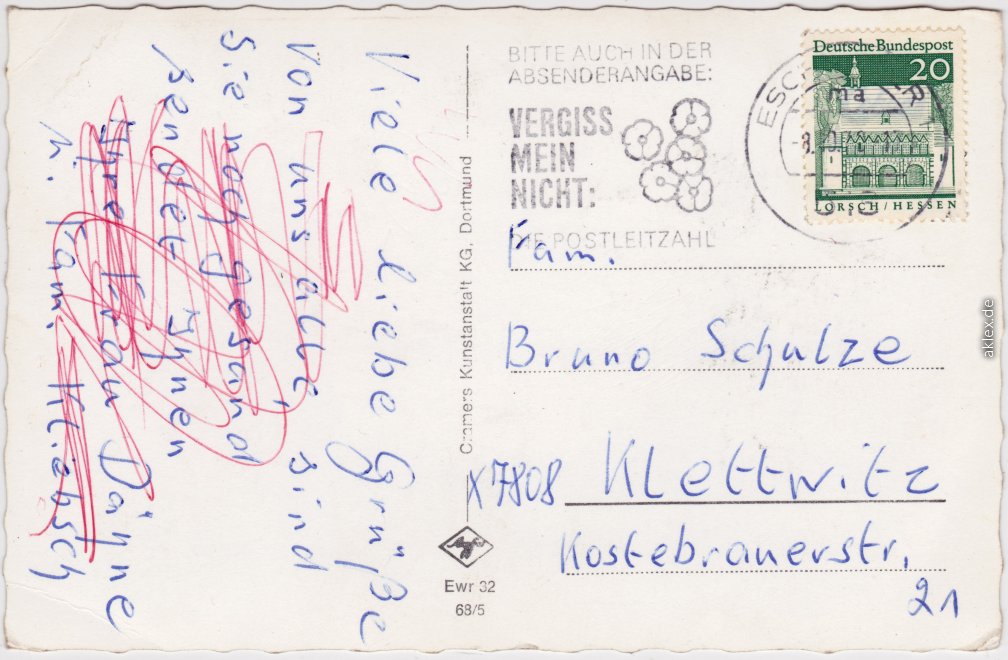 Viele liebe Grüße
von uns alle' sind
Sie noch gesund
sendet Ihnen
Ihre Frau Dähne
u. Fam. Kliebsch
Cramers Kunstanstalt KG, Dortmund
Ewr 32
68/5
BITTE AUCH IN DER
ABSENDERANGABE:
VERGISS
MEIN
NICHT:
DIE POSTLEITZAHL
Deutsche Bundespost
20
LORSCH/HESSEN
Fam.
Bruno Schulze
X7808 Klettwitz
Kostebrauerstr.
21
aklex.de